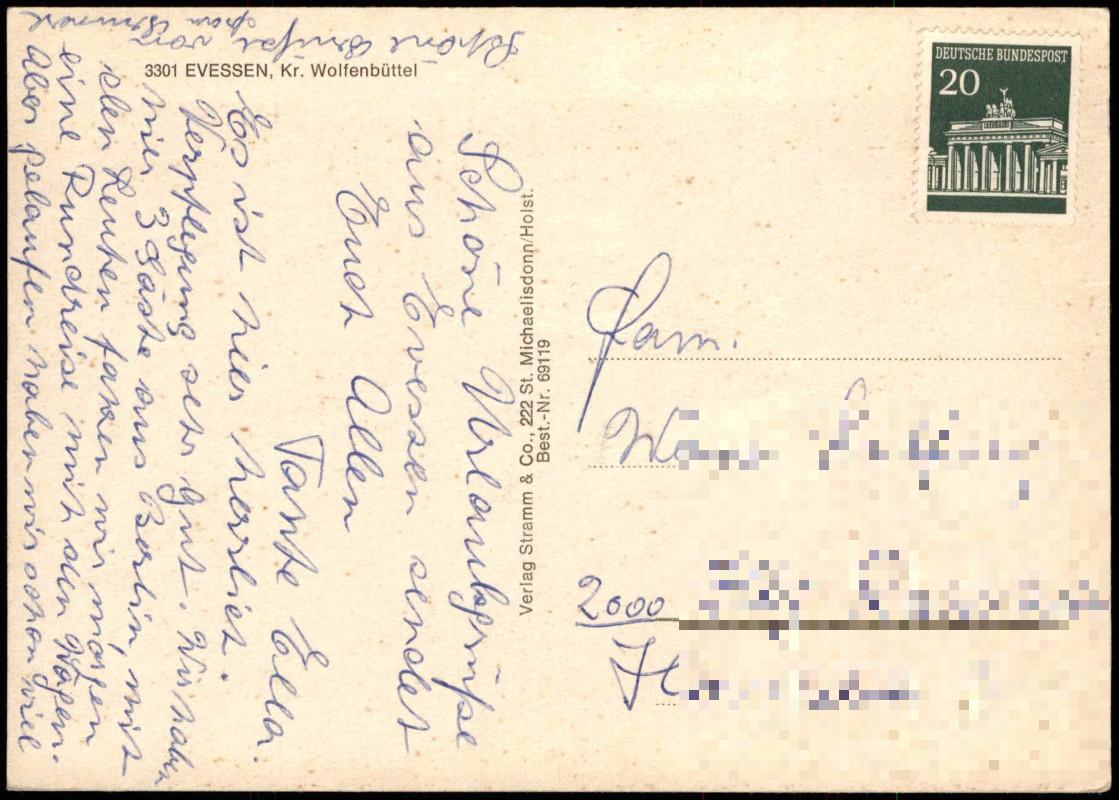 3301 EVESSEN, Kr. Wolfenbüttel
Schöne Urlaubgrüße
aus Evessen sendet
Euch Allen
Tante Ella.
Es ist hier herrlich.
Verpflegung sehr gut. Wir haben
hier 3 Gäste aus Berlin, mit
den Leuten fahren wir morgen
eine Rundreise mit den Wagen.
Aber gelaufen haben wir schon viel
Schöne Grüße von
Verlag Stramm & Co., 222 St. Michaelisdonn/Holst.
Best.-Nr. 69119
DEUTSCHE BUNDESPOST
20
Fam.
2000